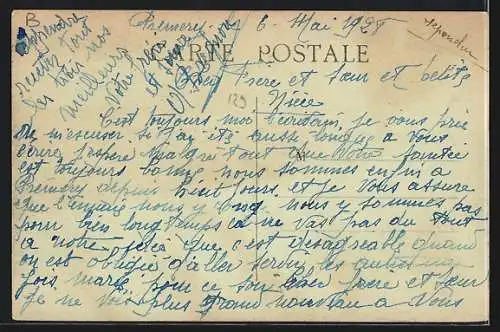 B
Prémery 6 Mai 1928
répondu
CARTE POSTALE
Cher Frère et Sœur et petite
Nièce
129
C'est toujours moi je vous prie
de m'excuser si j'ai été aussi longue a vous
écrire j'espère malgré tout que votre santée
est toujours bonne nous sommes enfin a
Prémery depuis huit jours et je vous assure
que l'ennuie nous y nous y sommes pas
pour bien longtemps ça ne vas pas du tout
a notre que c'est désagréable quand
on est obligée d'aller servir les autres une
fois marié pour ce soir cher frère et sœur
je ne vois plus grand nouveau a vous
apprendre
recevez tous
les trois nos
meilleurs
votre frère
et sœur